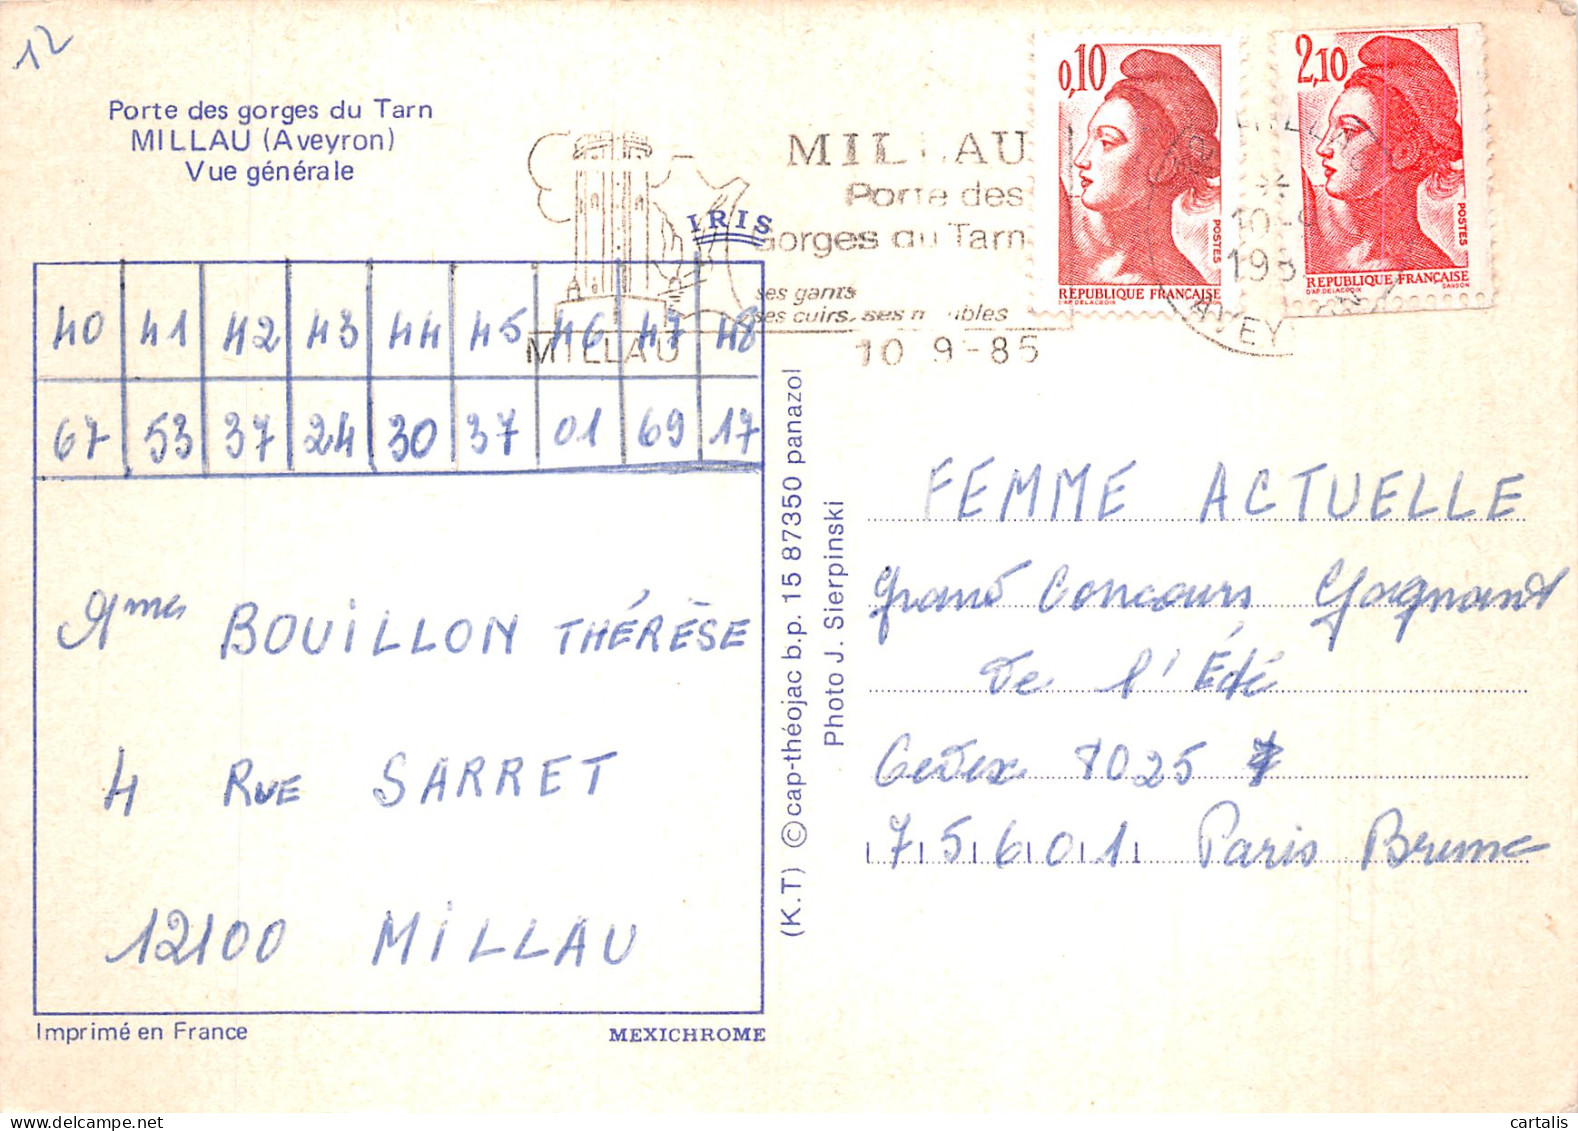 12
Porte des gorges du Tarn
MILLAU (Aveyron)
Vue générale
IRIS
MILLAU
MILLAU
Porte des
Gorges du Tarn
ses gants
ses cuirs, ses meubles
10 9-85
0,10
POSTES
RÉPUBLIQUE FRANÇAISE
D'AP. DELACROIX
2,10
POSTES
RÉPUBLIQUE FRANÇAISE
D'AP. DELACROIX GANDON
MILLAU
*
10-9
198
AVEY
40 41 42 43 44 45 46 47 48
67 53 37 24 30 37 01 69 17
BOUILLON THÉRÈSE
4 RUE SARRET
12100 MILLAU
Imprimé en France
MEXICHROME
(K.T) © cap-théojac b.p. 15 87350 panazol
Photo J. Sierpinski
FEMME ACTUELLE
Grand Concours Gagnant
de l'Été
Cedex 1025
75601 Paris Brune
© cartalis